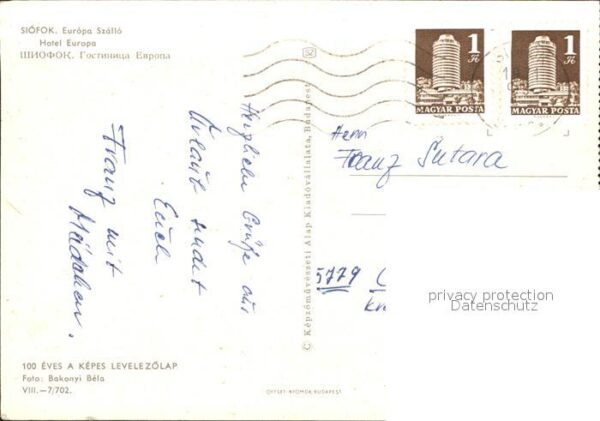 SIÓFOK. Európa Szálló
Hotel Europa
ШИОФОК. Гостиница Европа
1 Ft
MAGYAR POSTA
1 Ft
MAGYAR POSTA
Herrn
Franz Sutara
5779
privacy protection
Datenschutz
Herzliche Grüße aus
Urlaub sendet
Euch
Franz mit
Mädchen.
© Képzőművészeti Alap Kiadóvállalata, Budapest
100 ÉVES A KÉPES LEVELEZŐLAP
Foto: Bakonyi Béla
VIII.—7/702.
OFFSET-NYOMDA, BUDAPEST